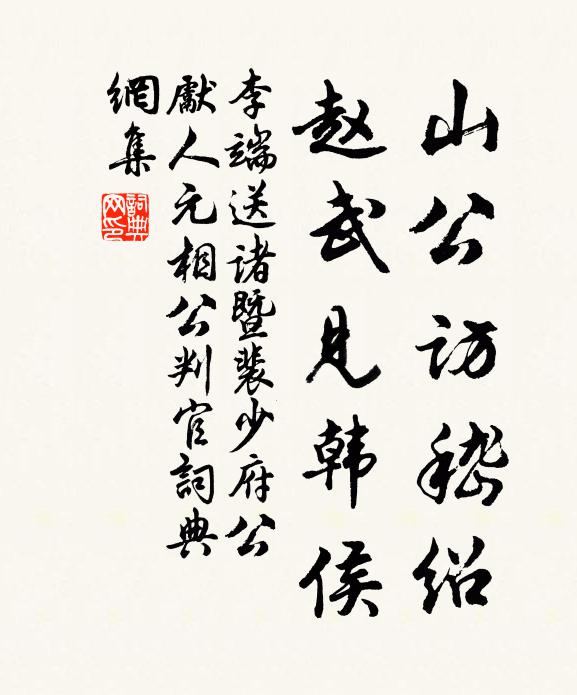 山公访嵇绍
赵武见韩侯
李端送諸暨裴少府公
獻人元相公判官詞典
網集
詞典网印